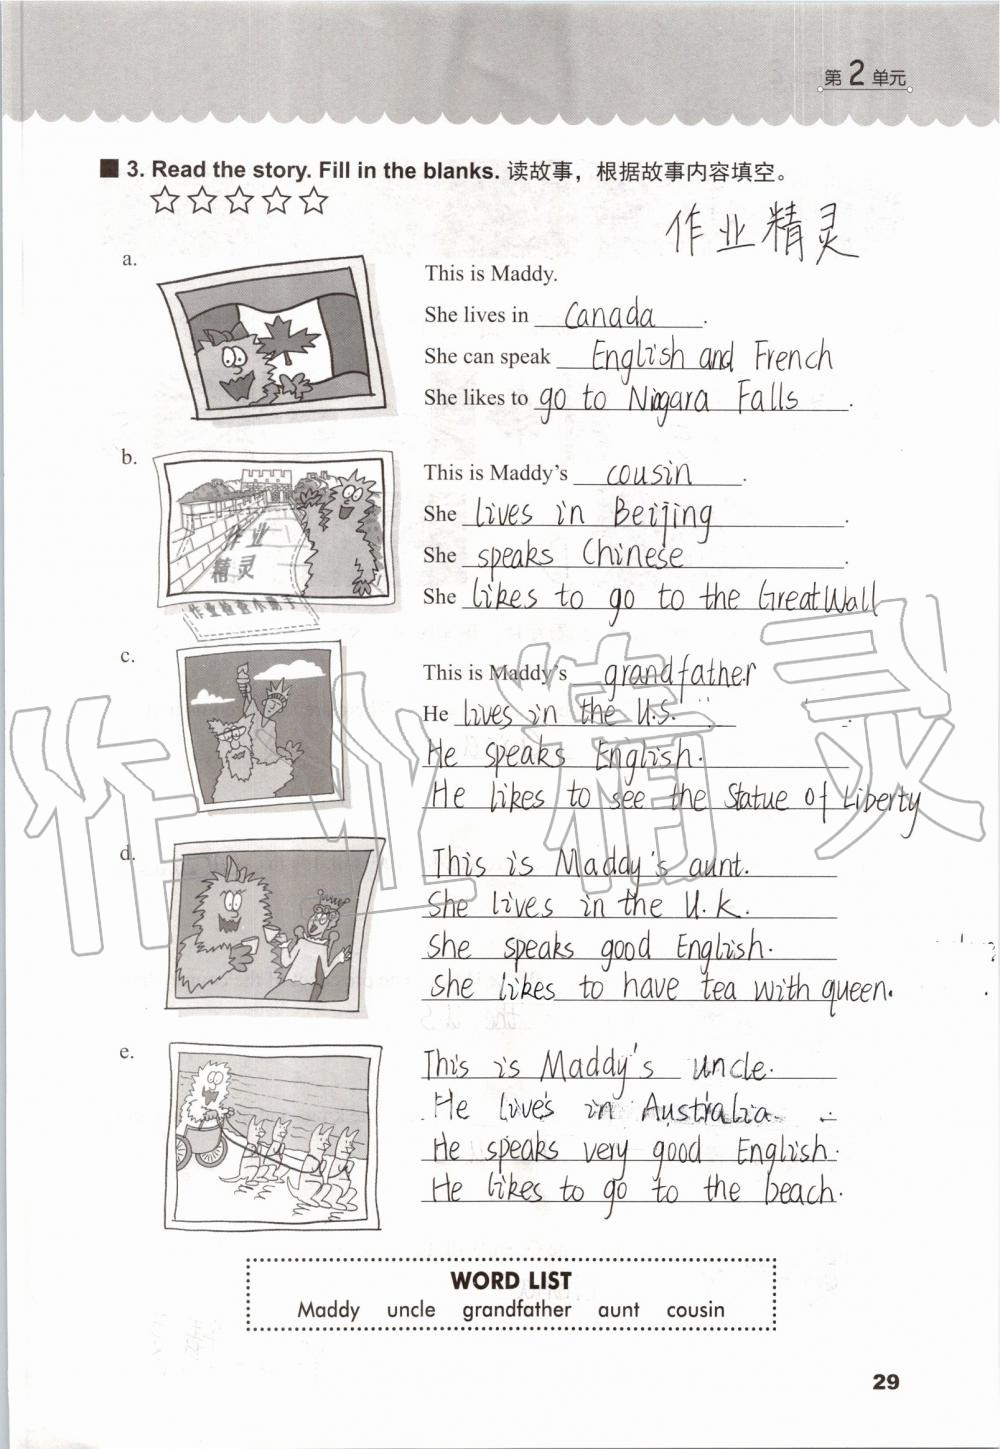 第2单元
3. Read the story. Fill in the blanks. 读故事，根据故事内容填空。
作业精灵
a.
This is Maddy.
She lives in Canada.
She can speak English and French
She likes to go to Niagara Falls.
b.
This is Maddy's cousin.
She lives in Beijing.
She speaks Chinese.
She likes to go to the Great Wall
作业
精灵
作业检查小助手
c.
This is Maddy's grandfather
He lives in the U.S.
He speaks English.
He likes to see the Statue of Liberty
作业精灵
d.
This is Maddy's aunt.
She lives in the U.K.
She speaks good English.
She likes to have tea with queen.
e.
This is Maddy's uncle.
He lives in Australia.
He speaks very good English.
He likes to go to the beach.
WORD LIST
Maddy uncle grandfather aunt cousin
29